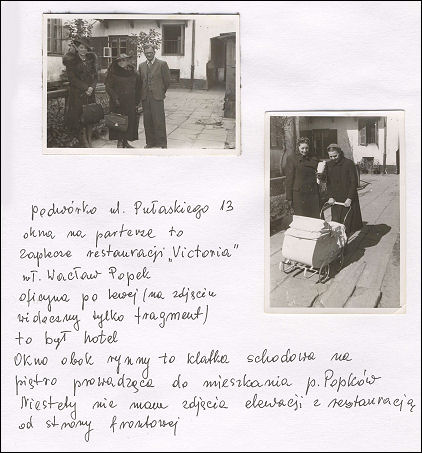 podwórko ul. Pułaskiego 13
okna na parterze to
zaplecze restauracji „Victoria"
wł. Wacław Popek
oficyna po lewej (na zdjęciu
widoczny tylko fragment)
to był hotel
Okno obok rynny to klatka schodowa na
piętro prowadząca do mieszkania p. Popków
Niestety nie mam zdjęcia elewacji z restauracją
od strony frontowej